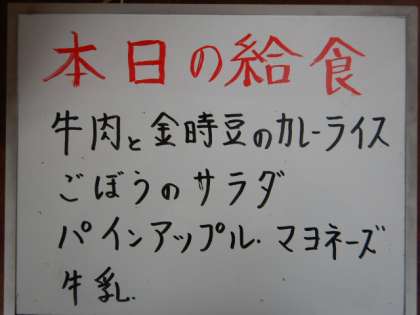 本日の給食
牛肉と金時豆のカレーライス
ごぼうのサラダ
パインアップル.マヨネーズ
牛乳.